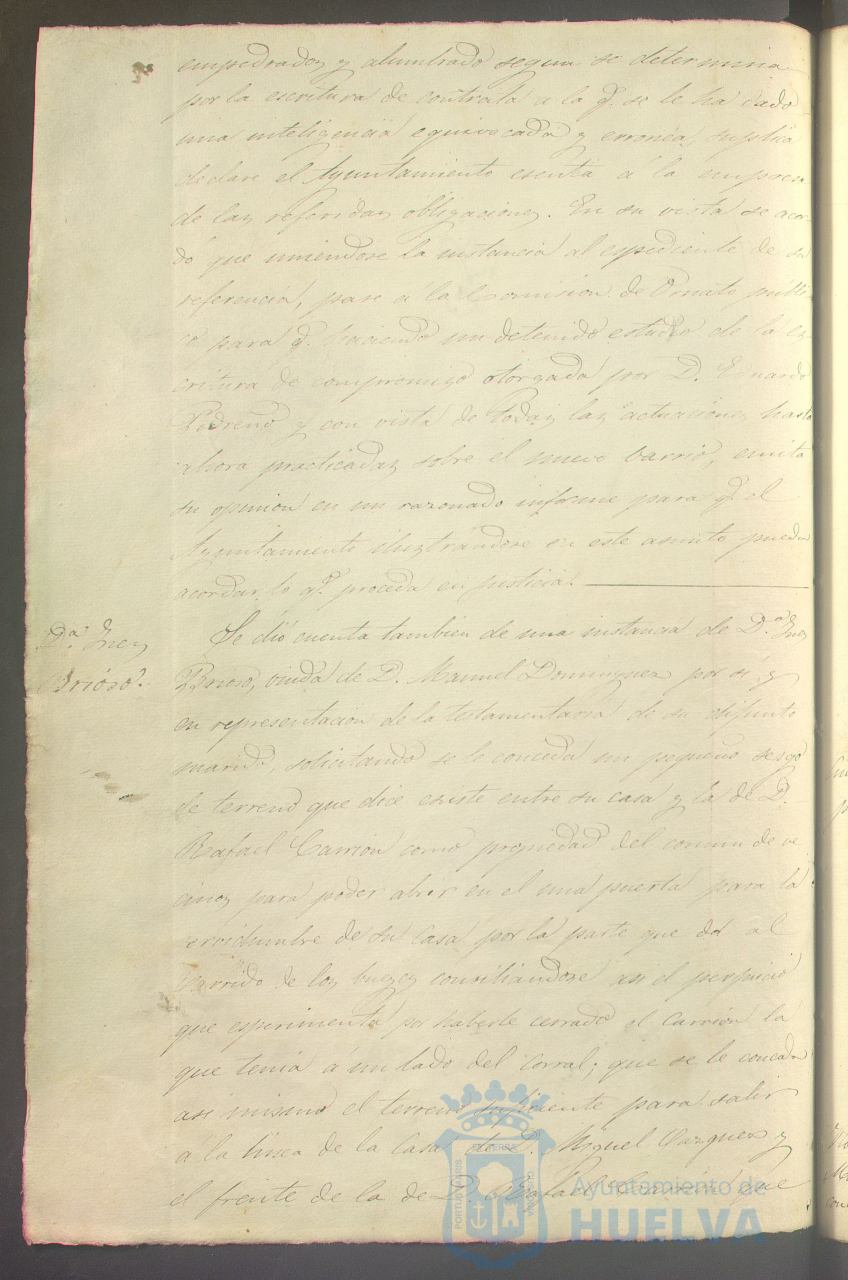 empedrados y alumbrado segun se determina
por la escritura de contrata a la q.e se le ha dado
una inteligencia equivocada y erronea, suplica
declare el Ayuntamiento esenta á la empresa
de las referidas obligaciones. En su vista se acor-
dó que uniendose la instancia al espediente de su
referencia, pase á la Comision de Ornato públi-
co para q.e haciendo un detenido estudio de la es
critura de compromiso otorgada por D. Eduardo
Padreño y con vista de todas las actuaciones hasta
ahora practicadas sobre el nuevo barrio, emita
su opinion en un razonado informe para q.e el
Ayuntamiento ilustrándose en este asunto pueda
acordar lo q.e proceda en justicia.
D.a Ines
Brioso.
Se dió cuenta tambien de una instancia de D.a Ines
Brioso, viuda de D. Manuel Dominguez por sí y
en representacion de la testamentaria de su difunto
marido, solicitando se le conceda un pequeño sesgo
de terreno que dice existe entre su casa y la de D.
Rafael Carrion como propiedad del comun de ve
cinos para poder abrir en el una puerta para la
servidumbre de su casa por la parte que dá al
de los bueyes conciliandose asi el perjuicio
que esperimenta por haberle cerrado el Carrion la
que tenia á un lado del corral; que se le conceda
asi mismo el terreno suficiente para salir
á la linea de la Casa de D. Miguel Vazquez y
el frente de la de D. Rafael Carrion que
PORTUS MARIS
ET TERRÆ
CUSTODIA
Ayuntamiento de
HUELVA